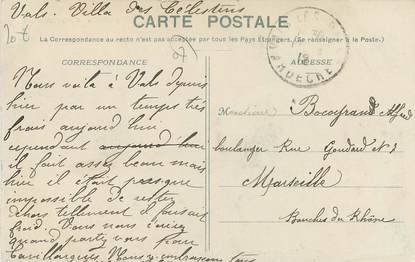 Vals. Villa des Célestins
CARTE POSTALE
La Correspondance au recto n'est pas acceptée par tous les Pays Etrangers. (Se renseigner à la Poste.)
CORRESPONDANCE
ADRESSE
ARDECHE
Nous voilà à Vals depuis
hier par un temps très
frais aujourd'hui
cependant aujourd'hui
il fait assez beau mais
hier il était presque
impossible de rester
dehors tellement il faisait
froid. Vous nous direz
quand partez vous pour
Nous embrassons tous
Monsieur Alfred
boulanger Rue N 1
Marseille
Bouches du Rhône